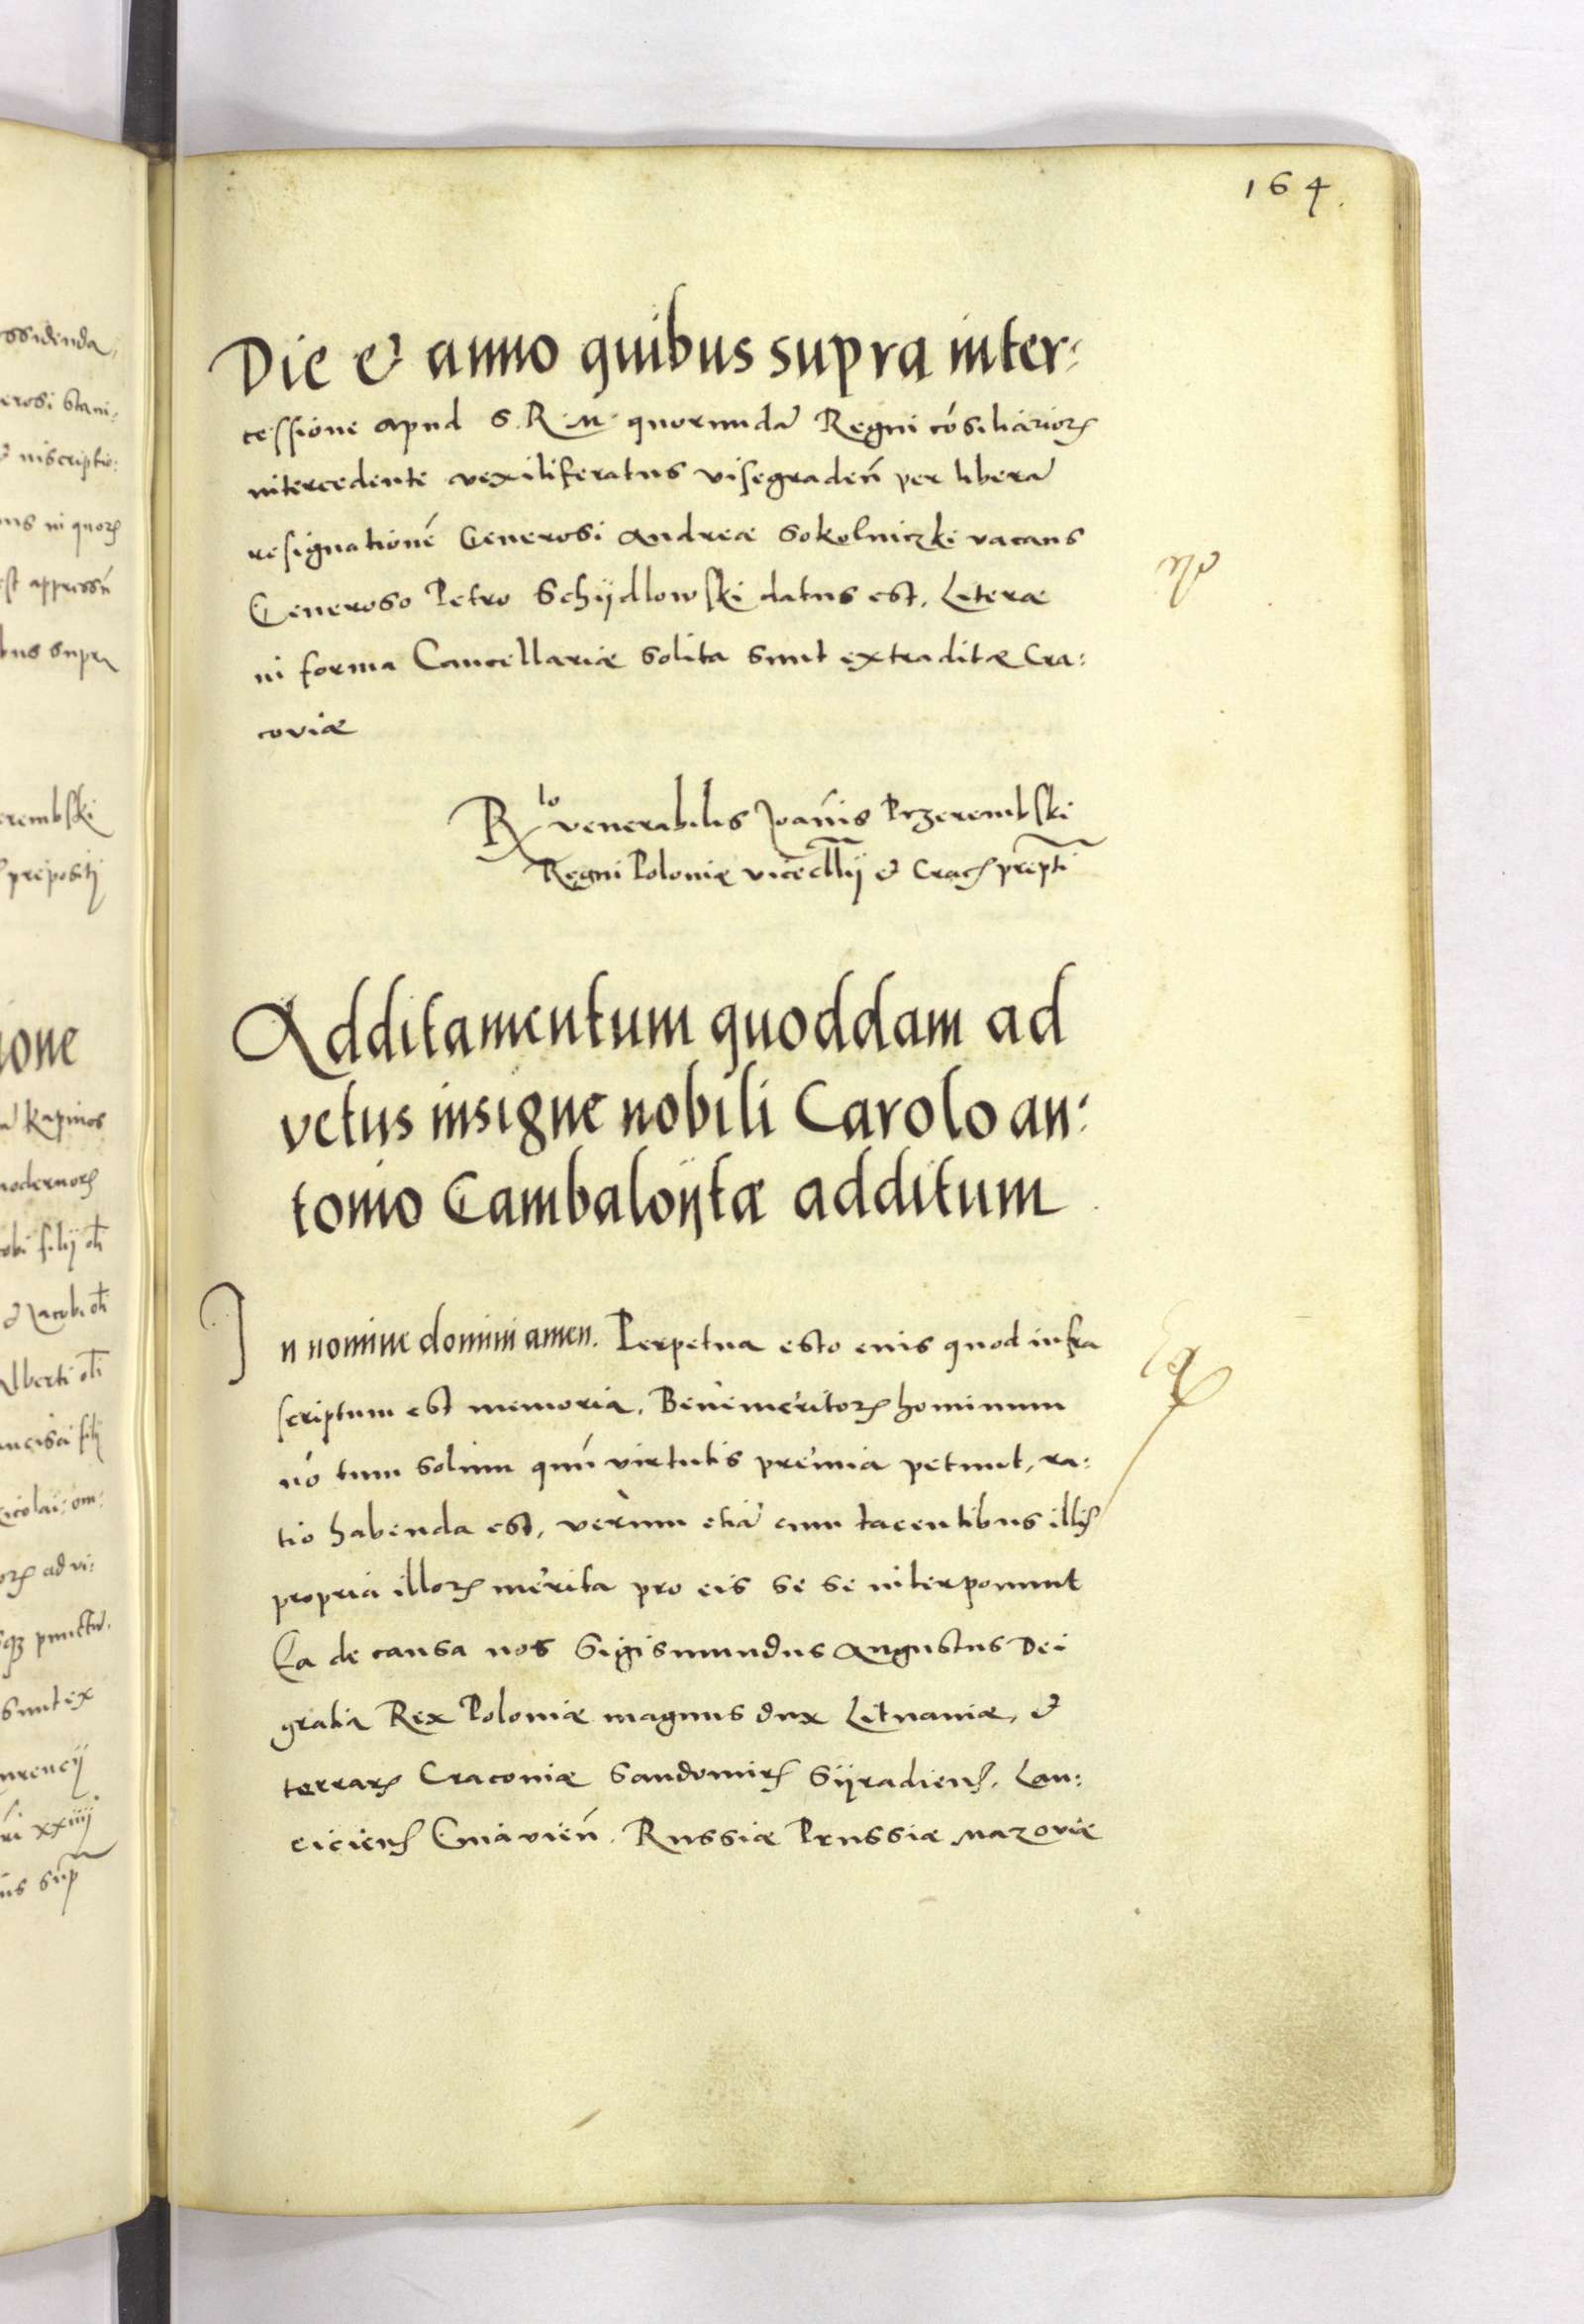 164.
Die & anno quibus supra inter:
cessione apud S. R. M. quorundã Regni cõsiliarioꝝ
intercedente vexiliferatus visegradeñ per liberã
resignationẽ Generosi Andreæ Sokolniczki vacans
Generoso Petro Schÿdlowski datus est. Literæ
in forma Cancellariæ solita sunt extraditæ Cra:
coviæ
Rlo venerabilis Joañis Przerembski
Regni Poloniæ vicecllij & Crac prepti
Additamentum quoddam ad
vetus insigne nobili Carolo an:
tonio Gambaloÿtæ additum
In nomine domini amen. Perpetua esto eius quod infra
scriptum est memoria. Benemeritoꝝ hominum
nõ tum solum quũ virtutis premia petunt, ra:
tio habenda est, verùm etiã cum tacentibus illis
propria illoꝝ merita pro eis se se interponunt
Ea de causa nos Sigismundus Augustus Dei
gratia Rex Poloniæ magnus dux Lituaniæ, &
terraꝝ Cracoviæ Sandomirꝭ Sÿradienꝭ. Lan:
cicienꝭ Cuiavieñ. Russiæ Prussiæ Mazoviæ